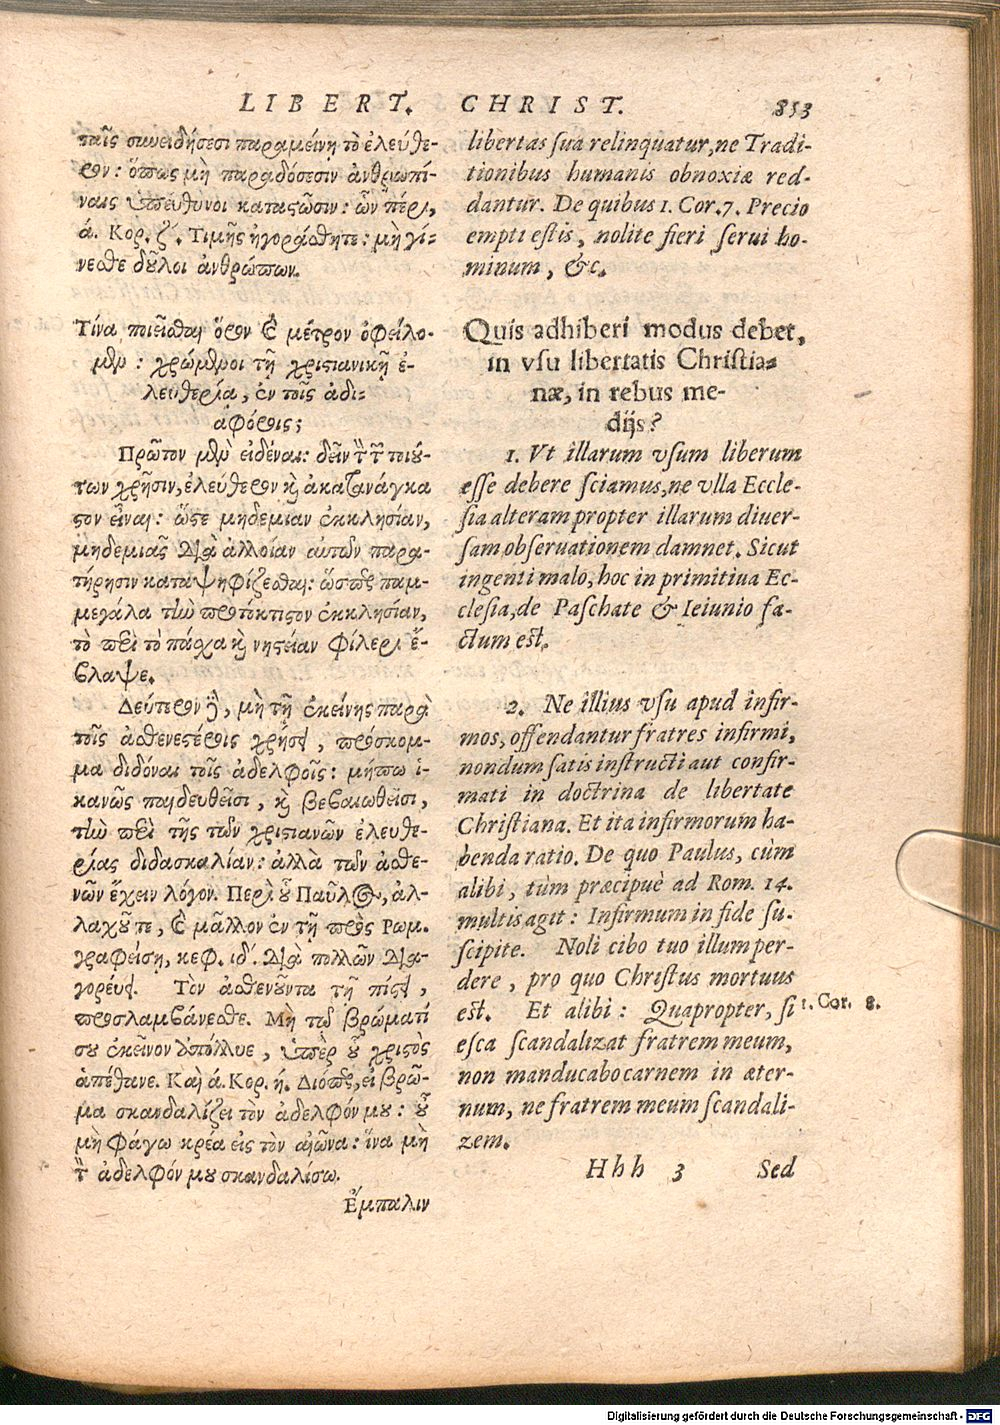 LIBERT. CHRIST. 853
ταῖς συνειδήσεσι παραμείνῃ τὸ ἐλεύθε-
ρον: ὅπως μὴ παραδόσεσιν ἀνθρωπί-
ναις ὑπεύθυνοι καταςῶσιν: ὧν πέρι,
ά. Κορ. ζ΄. Τιμῆς ἠγοράσθητε: μὴ γί-
νεσθε δοῦλοι ἀνθρώπων.
Τίνα ποιεῖσθαι ὅρον καὶ μέτρον ὀφείλο-
μεν: χρώμενοι τῇ χριςιανικῇ ἐ-
λευθερίᾳ, ἐν τοῖς ἀδι-
αφόροις;
Πρῶτον μὲν εἰδέναι: δεῖν τὴν τῶν τοιού-
των χρῆσιν, ἐλεύθερον καὶ ἀκατανάγκα
ςον εἶναι: ὥςε μηδεμίαν ἐκκλησίαν,
μηδεμιᾶς διὰ ἀλλοίαν αὐτῶν παρα-
τήρησιν καταψηφίζεσθαι: ὥσπερ παμ-
μεγάλα τὴν πρωτόκτιςον ἐκκλησίαν,
τὸ περὶ τὸ πάσχα καὶ νηςείαν φίλερι ἔ-
βλαψε.
Δεύτερον δὲ, μὴ τῇ ἐκείνης παρὰ
τοῖς ἀσθενεςέροις χρήσει, πρόσκομ-
μα διδόναι τοῖς ἀδελφοῖς: μήπω ἱ-
κανῶς παιδευθεῖσι, καὶ βεβαιωθεῖσι,
τὴν περὶ τῆς τῶν χριςιανῶν ἐλευθε-
ρίας διδασκαλίαν: ἀλλὰ τῶν ἀσθε-
νῶν ἔχειν λόγον. Περὶ οὗ Παῦλος, ἀλ-
λαχοῦ τε, καὶ μᾶλλον ἐν τῇ πρὸς Ρωμ.
γραφείσῃ, κεφ. ιδ΄. διὰ πολλῶν δια-
γορεύει. Τὸν ἀσθενοῦντα τῇ πίςει,
προσλαμβάνεσθε. Μὴ τῷ βρώματί
σου ἐκεῖνον ἀπόλλυε, ὑπὲρ οὗ χριςὸς
ἀπέθανε. Καὶ ά. Κορ. ή. Διόπερ, εἰ βρῶ-
μα σκανδαλίζει τὸν ἀδελφόν μου: οὐ
μὴ φάγω κρέα εἰς τὸν αἰῶνα: ἵνα μὴ
τὸν ἀδελφόν μου σκανδαλίσω.
Ἔμπαλιν
libertas sua relinquatur, ne Tradi-
tionibus humanis obnoxiæ red-
dantur. De quibus 1. Cor. 7. Precio
empti estis, nolite fieri serui ho-
minum, &c.
Quis adhiberi modus debet,
in vsu libertatis Christia-
næ, in rebus me-
dijs?
1. Vt illarum vsum liberum
esse debere sciamus, ne vlla Eccle-
sia alteram propter illarum diuer-
sam obseruationem damnet. Sicut
ingenti malo, hoc in primitiua Ec-
clesia, de Paschate & Ieiunio fa-
ctum est.
2. Ne illius vsu apud infir-
mos, offendantur fratres infirmi,
nondum satis instructi aut confir-
mati in doctrina de libertate
Christiana. Et ita infirmorum ha-
benda ratio. De quo Paulus, cùm
alibi, tùm præcipuè ad Rom. 14.
multis agit: Infirmum in fide su-
scipite. Noli cibo tuo illum per-
dere, pro quo Christus mortuus
est. Et alibi: Quapropter, si
esca scandalizat fratrem meum,
non manducabo carnem in æter-
num, ne fratrem meum scandali-
zem.
1. Cor. 8.
Hhh 3 Sed
Digitalisierung gefördert durch die Deutsche Forschungsgemeinschaft - DFG